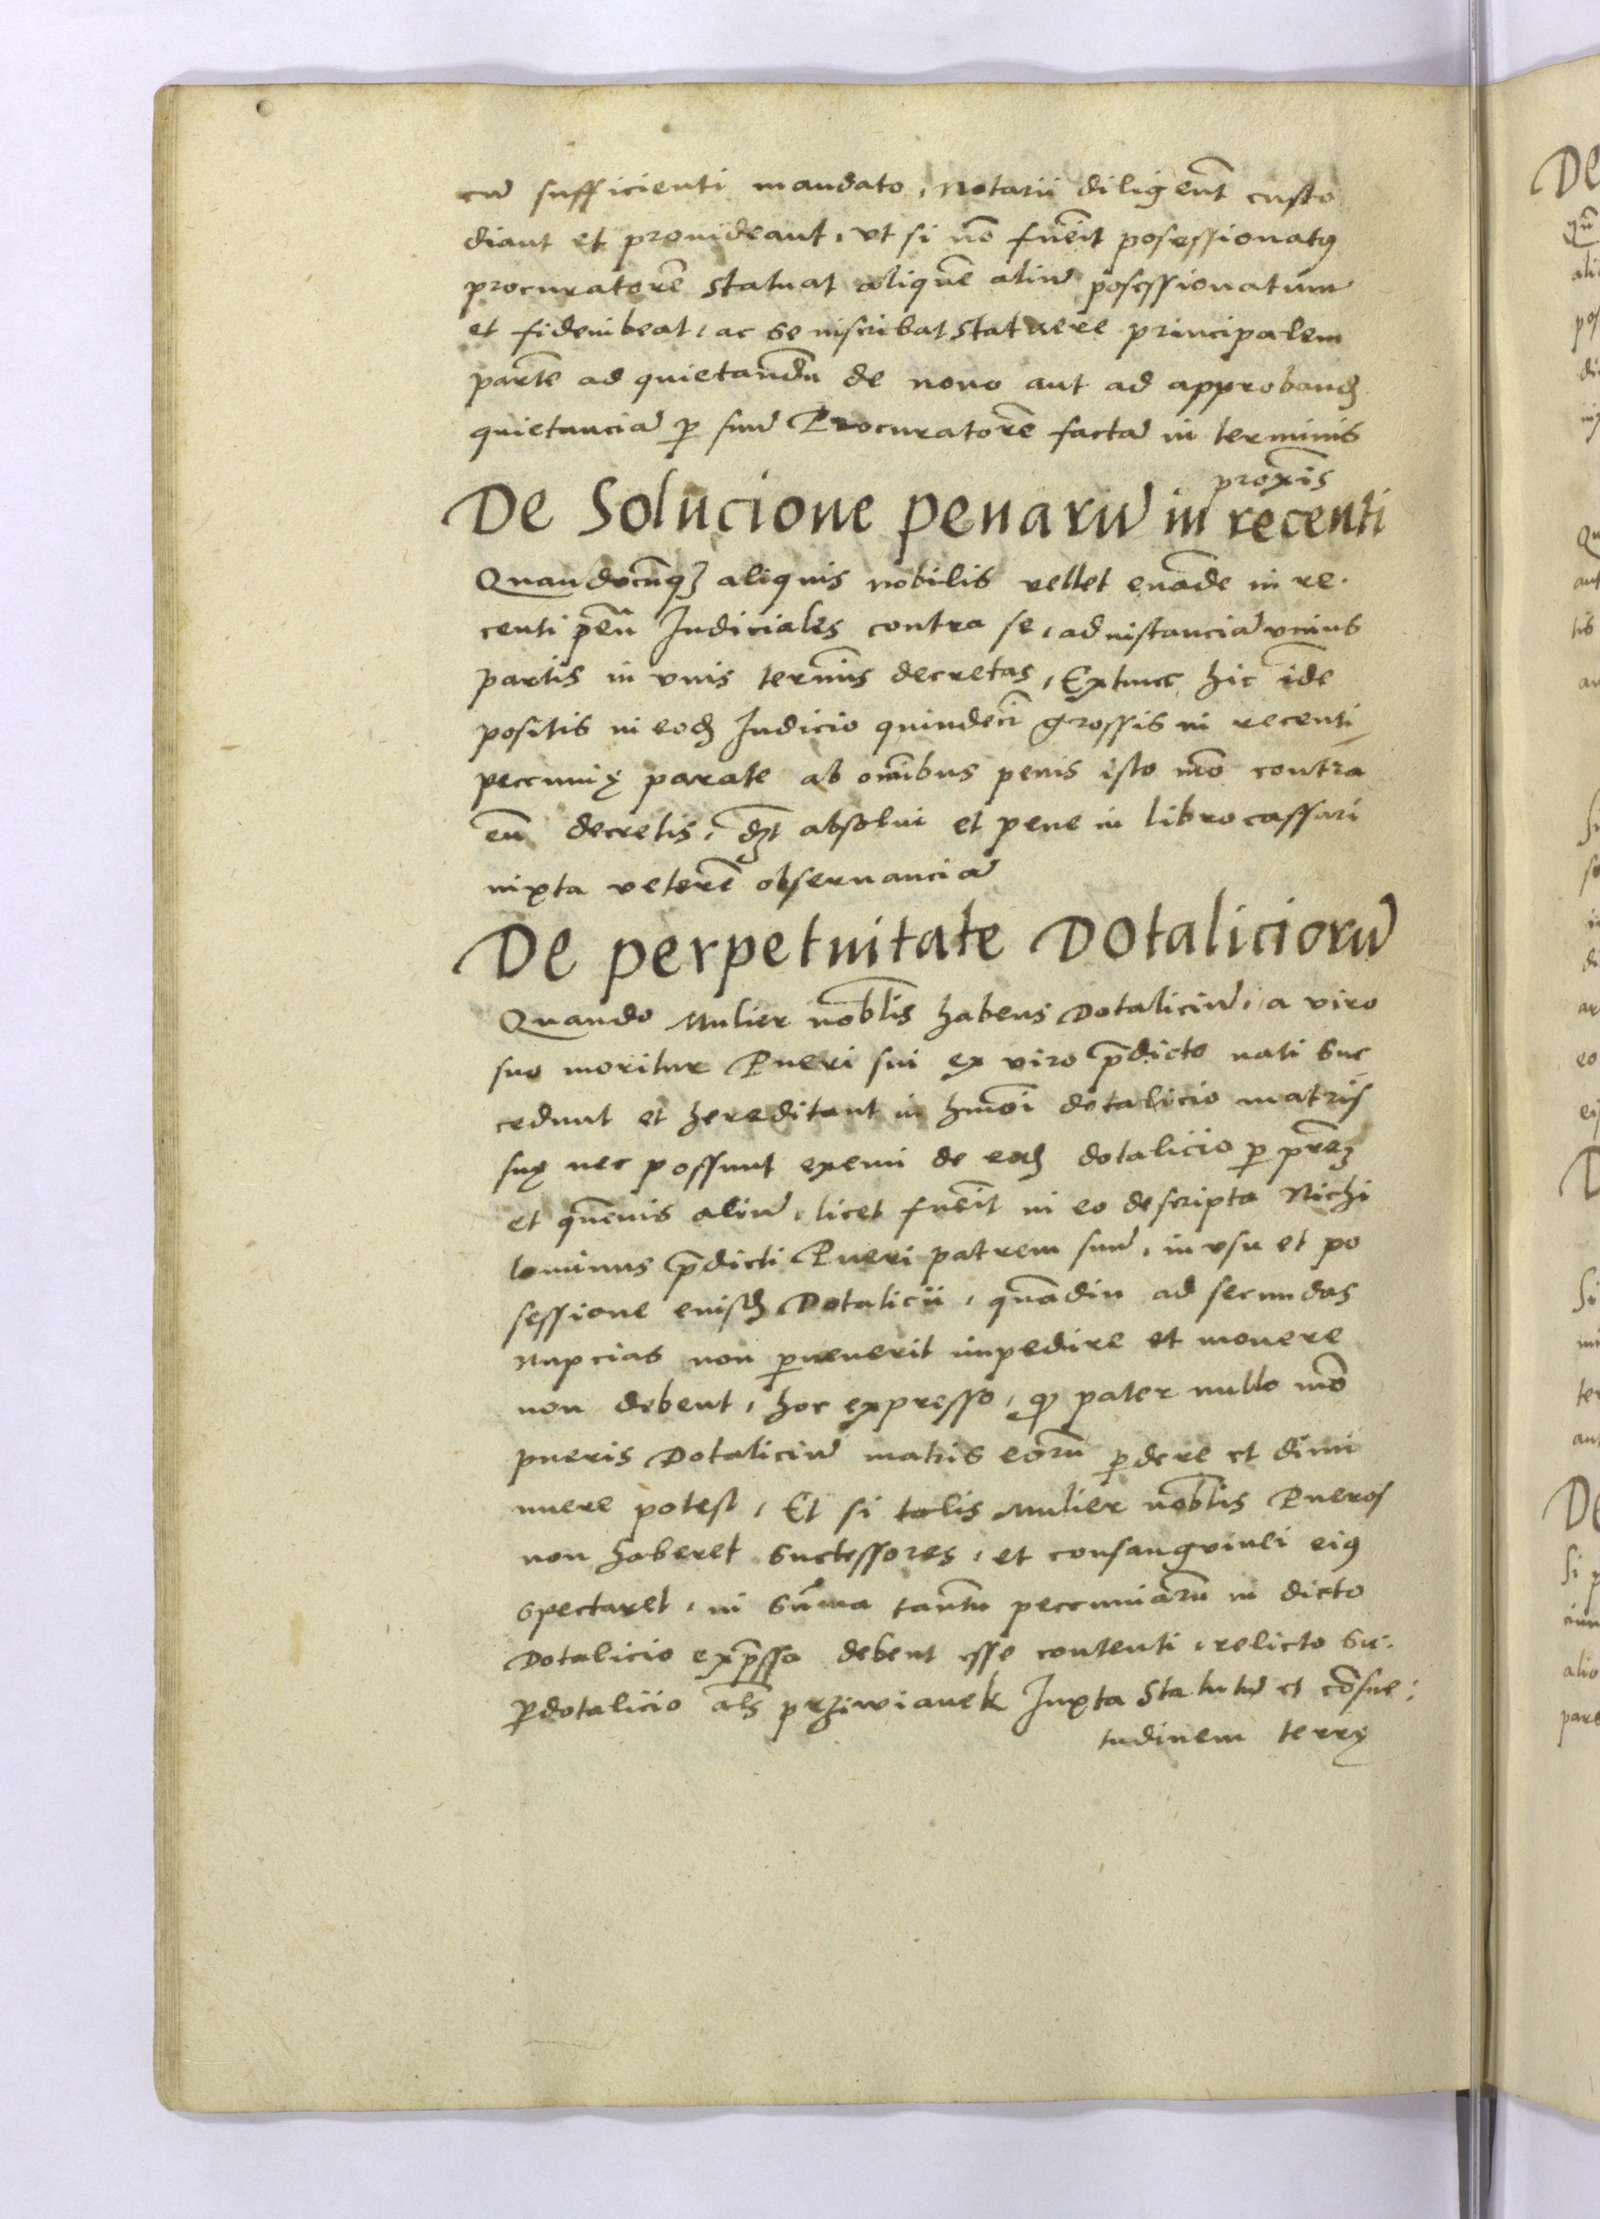 cū sufficienti mandato, Notarii diligent̄ custo
diant et prouideant, vt si nō fuerīt posessionatꝰ
procuratorē statuat aliquē aliū posessionatum
et fideiubeat, ac se inscribat statuere principalem
partē ad quietandū de nouo aut ad approbandꝫ
quietanciā ꝑ suū Procuratorē factā in terminis
prox̄is
De Solucione penarū in recenti
Quandocūqꝫ aliquis nobilis vellet euadē in re-
centi pen̄ Iudiciales contra se, ad instanciā vnius
partis in vnis termīs decretas, Extunc hic idē
positis in eodꝫ Iudicio quindecī grossis in recenti
peccunię parate ab om̄ibus penis isto mō contra
eū decretis, dꝫt absolui et pene in libro cassari
iuxta veterē obseruanciā
De perpetuitate Dotaliciorū
Quando Mulier nobl̄is habens Dotaliciū, a viro
suo moritur Pueri sui ex viro p̄dicto nati suc
cedunt et hereditant in hmōi dotalicio matris
suę nec possunt exemi de eodꝫ dotalicio ꝑ pr̄eꝫ
et quēuis aliū, licet fuerīt in eo descripta Nichi
lominus p̄dicti Pueri patrem suū, in vsu et po
sessione eiusdꝫ Dotalicii, quādiu ad secundas
Nupcias non ꝑuenerit impedire et mouere
non debent, hoc expresso, ꝙ pater nullo mō
pueris Dotaliciū matris eorū ꝑdere et dimi
nuere potest, Et si talis Mulier nobl̄is Pueros
non haberet Successores, et consanguinei eiꝰ
spectaret, in sūma tantū peccuniarū in dicto
Dotalicio exp̄ssa debent esse contenti, relicto su-
ꝑdotalicio al̄s prziwianek Iuxta Statutū et cōsue-
tudinem terrę